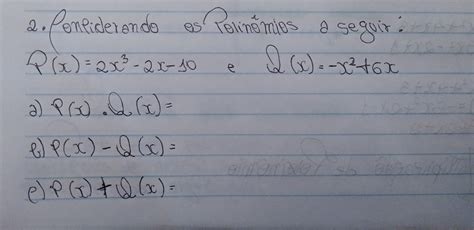 2. Considerando os Polinômios a seguir:
P(x) = 2x³ - 2x - 10 e Q(x) = -x² + 6x
a) P(x) . Q(x) =
b) P(x) - Q(x) =
c) P(x) + Q(x) =